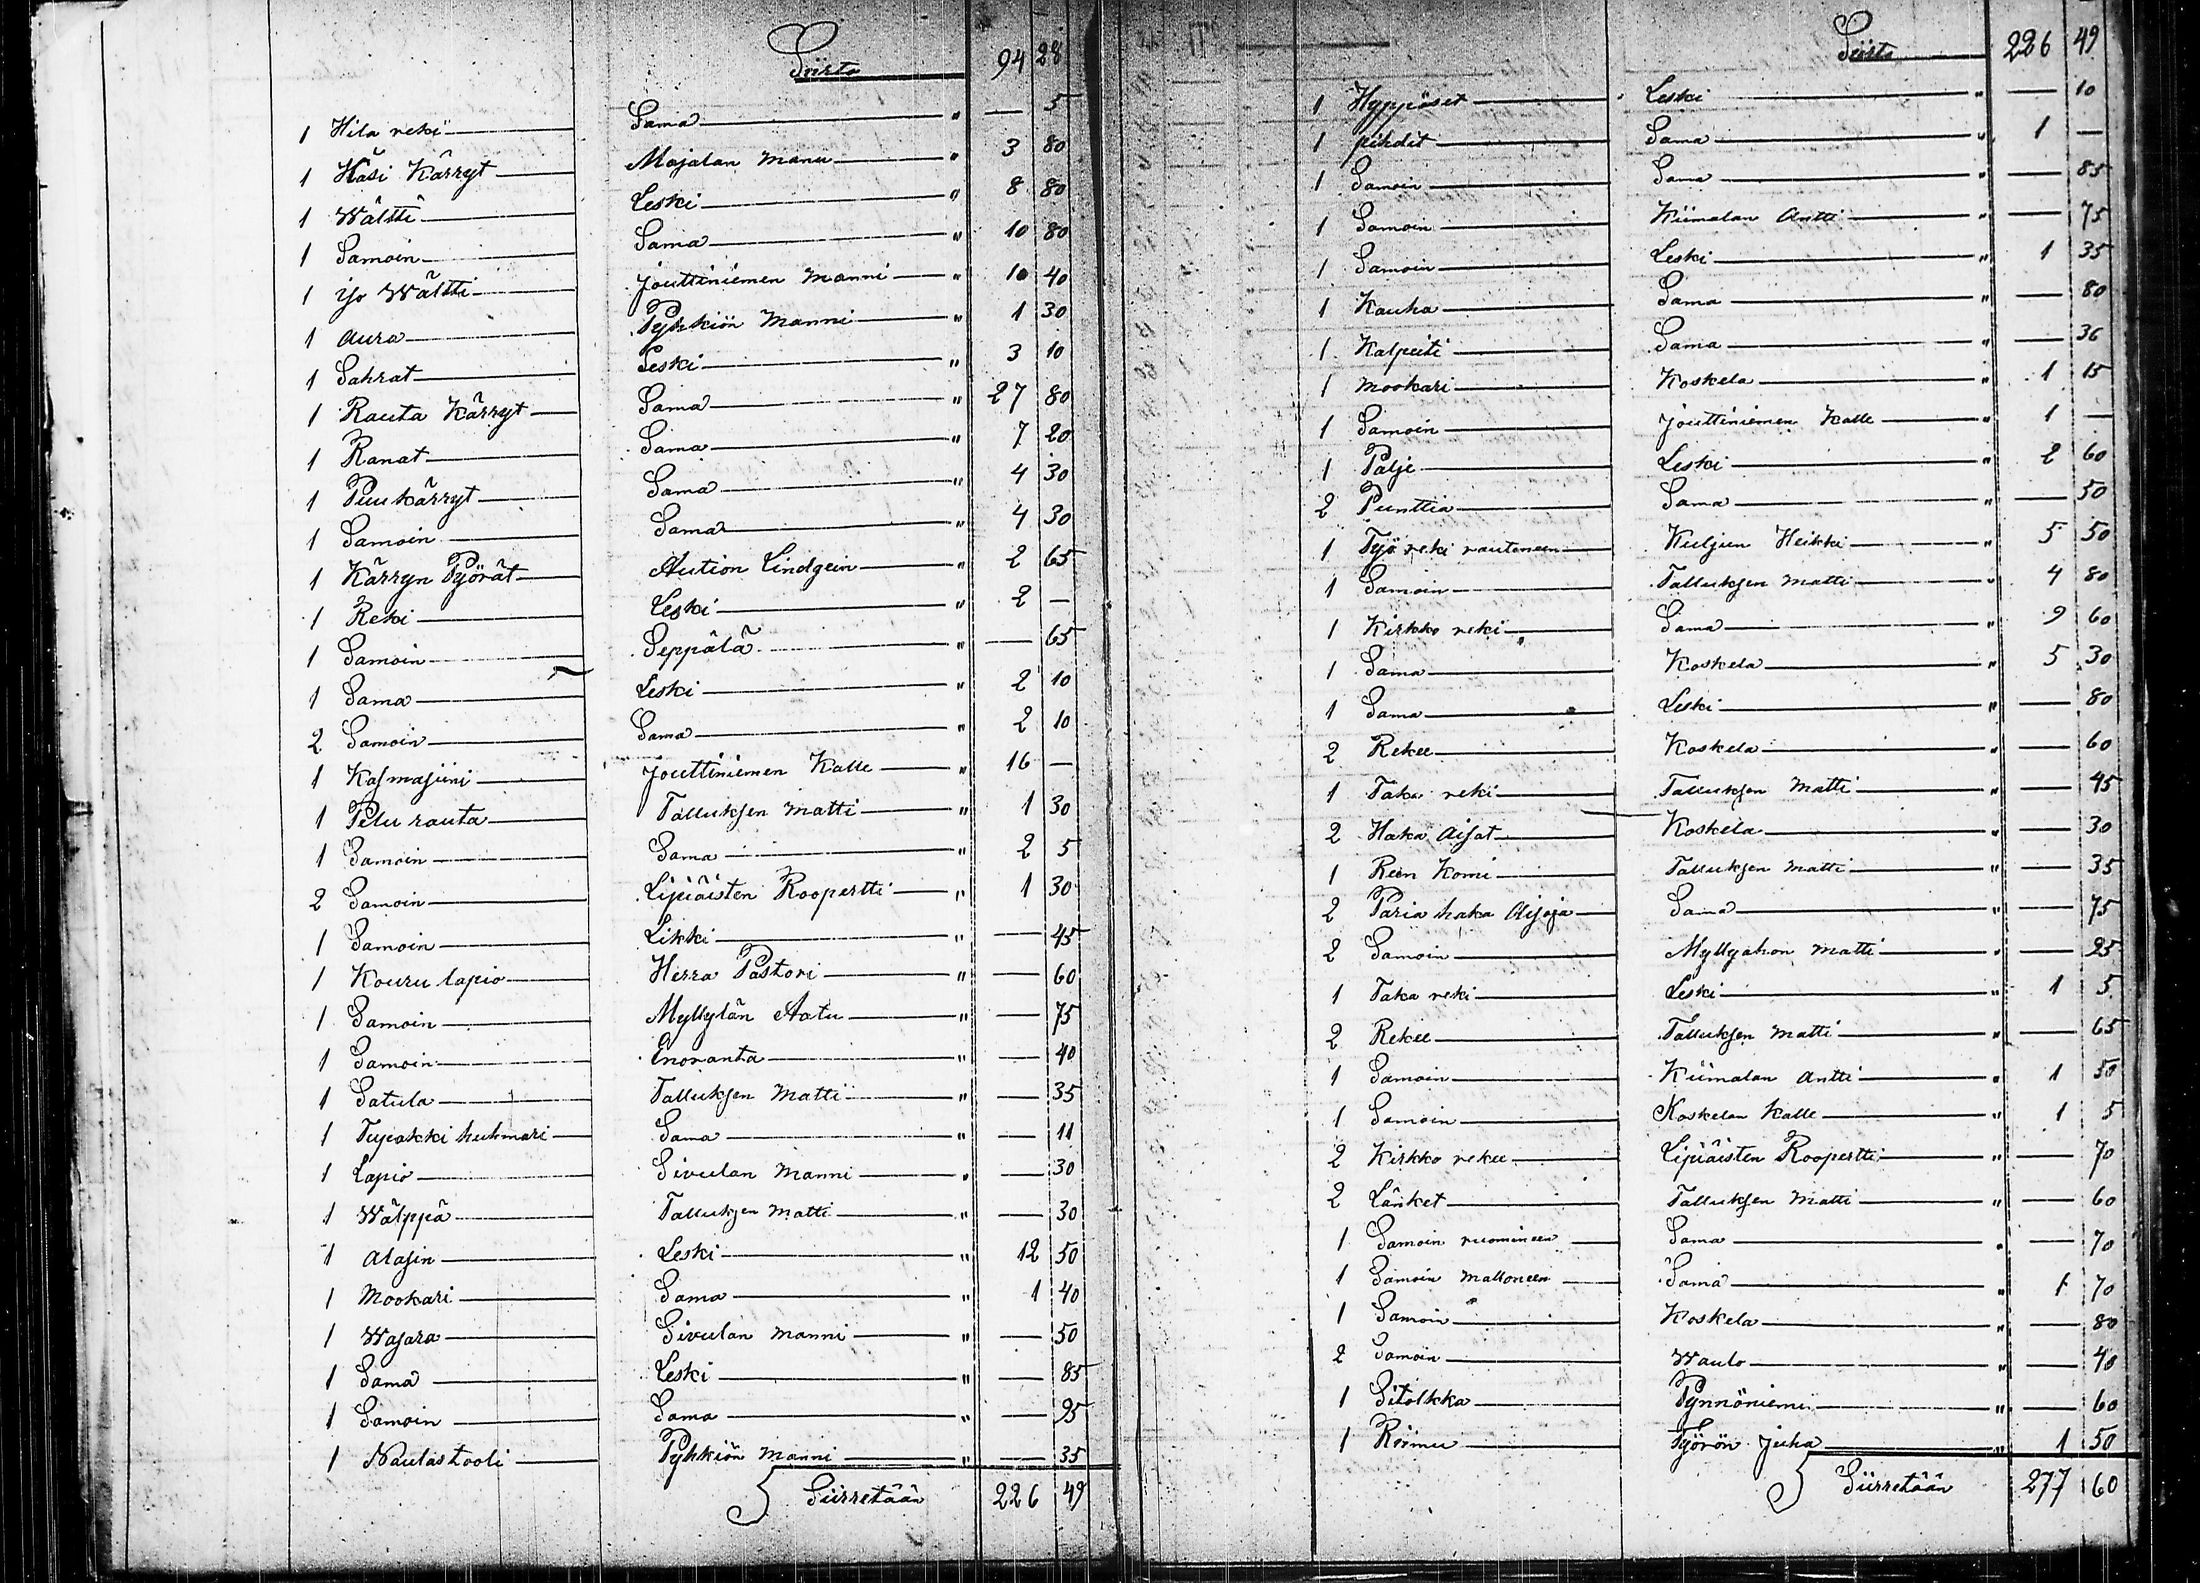 Siirto 94 28
1 Hila reki — Sama " — 5
1 Käsi Kärryt — Majalan Manu — " 3 80
1 Wältti — Leski — " 8 80
1 Samoin — Sama — " 10 80
1 yv Wältti — Jouttiniemen Manni — " 10 40
1 Aura — Pyhkiön Manni — " 1 30
1 Sahrat — Leski — " 3 10
1 Rauta Kärryt — Sama — " 27 80
1 Ranat — Sama — " 7 20
1 Puu kärryt — Sama — " 4 30
1 Samoin — Sama — " 4 30
1 Kärryn Pyörät — Aution Lindgein — " 2 65
1 Reki — Leski — " 2 —
1 Samoin — Seppälä — " — 65
1 Sama — Leski — " 2 10
2 Samoin — Sama — " 2 10
1 Kasmasiini — Jouttiniemen Kalle — " 16 —
1 Pelu rauta — Talluksen Matti — " 1 30
1 Samoin — Sama — " 2 5
2 Samoin — Lipiäisten Roopertti — " 1 30
1 Samoin — Likki — " — 45
1 Kouru lapio — Herra Pastori — " — 60
1 Samoin — Myllylän Aatu — " — 75
1 Samoin — Enoranta — " — 40
1 Satula — Talluksen Matti — " — 35
1 Tupakki huhmari — Sama — " — 11
1 Lapio — Sivulan Manni — " — 30
1 Wälppä — Talluksen Matti — " — 30
1 Alasin — Leski — " 12 50
1 Mookari — Sama — " 1 40
1 Wasara — Sivulan Manni — " — 50
1 Sama — Leski — " — 85
1 Samoin — Sama — " — 95
1 Naulastooli — Pyhkiön Manni — " — 35
Siirretään 226 49
Siirto 226 49
1 Hyppöset — Leski — " — 10
1 pihdit — Sama — " 1 —
1 Samoin — Sama — " — 85
1 Samoin — Kiimalan Antti — " — 75
1 Samoin — Leski — " 1 35
1 Kauha — Sama — " — 80
1 Kalpeiti — Sama — " — 36
1 Mookari — Koskela — " 1 15
1 Samoin — Jouttiniemen Kalle — " 1 —
1 Palje — Leski — " 2 60
2 Punttia — Sama — " — 50
1 Työ reki rautoneen — Kuljun Heikki — " 5 50
1 Samoin — Talluksen Matti — " 4 80
1 Kirkko reki — Sama — " 9 60
1 Sama — Koskela — " 5 30
1 Sama — Leski — " — 80
2 Rekee — Koskela — " — 60
1 Taka reki — Talluksen Matti — " — 45
2 Haka Aisat — Koskela — " — 30
1 Reen Komi — Talluksen Matti — " — 35
2 Paria haka Aisoja — Sama — " — 75
2 Samoin — Myllyahon Matti — " — 25
1 Taka reki — Leski — " 1 5
2 Rekee — Talluksen Matti — " — 65
1 Samoin — Kiimalan Antti — " 1 50
1 Samoin — Koskelan Kalle — " 1 5
2 Kirkko rekee — Lipiäisten Roopertti — " — 70
2 Länket — Talluksen Matti — " — 60
1 Samoin ruomineen — Sama — " — 70
1 Samoin Malloneen — Sama — " 1 70
1 Samoin — Koskela — " — 80
2 Samoin — Waulo — " — 40
1 Sitolkka — Pynnöniemi — " — 60
1 Röimu — Työrön Juha — " 1 50
Siirretään 277 60